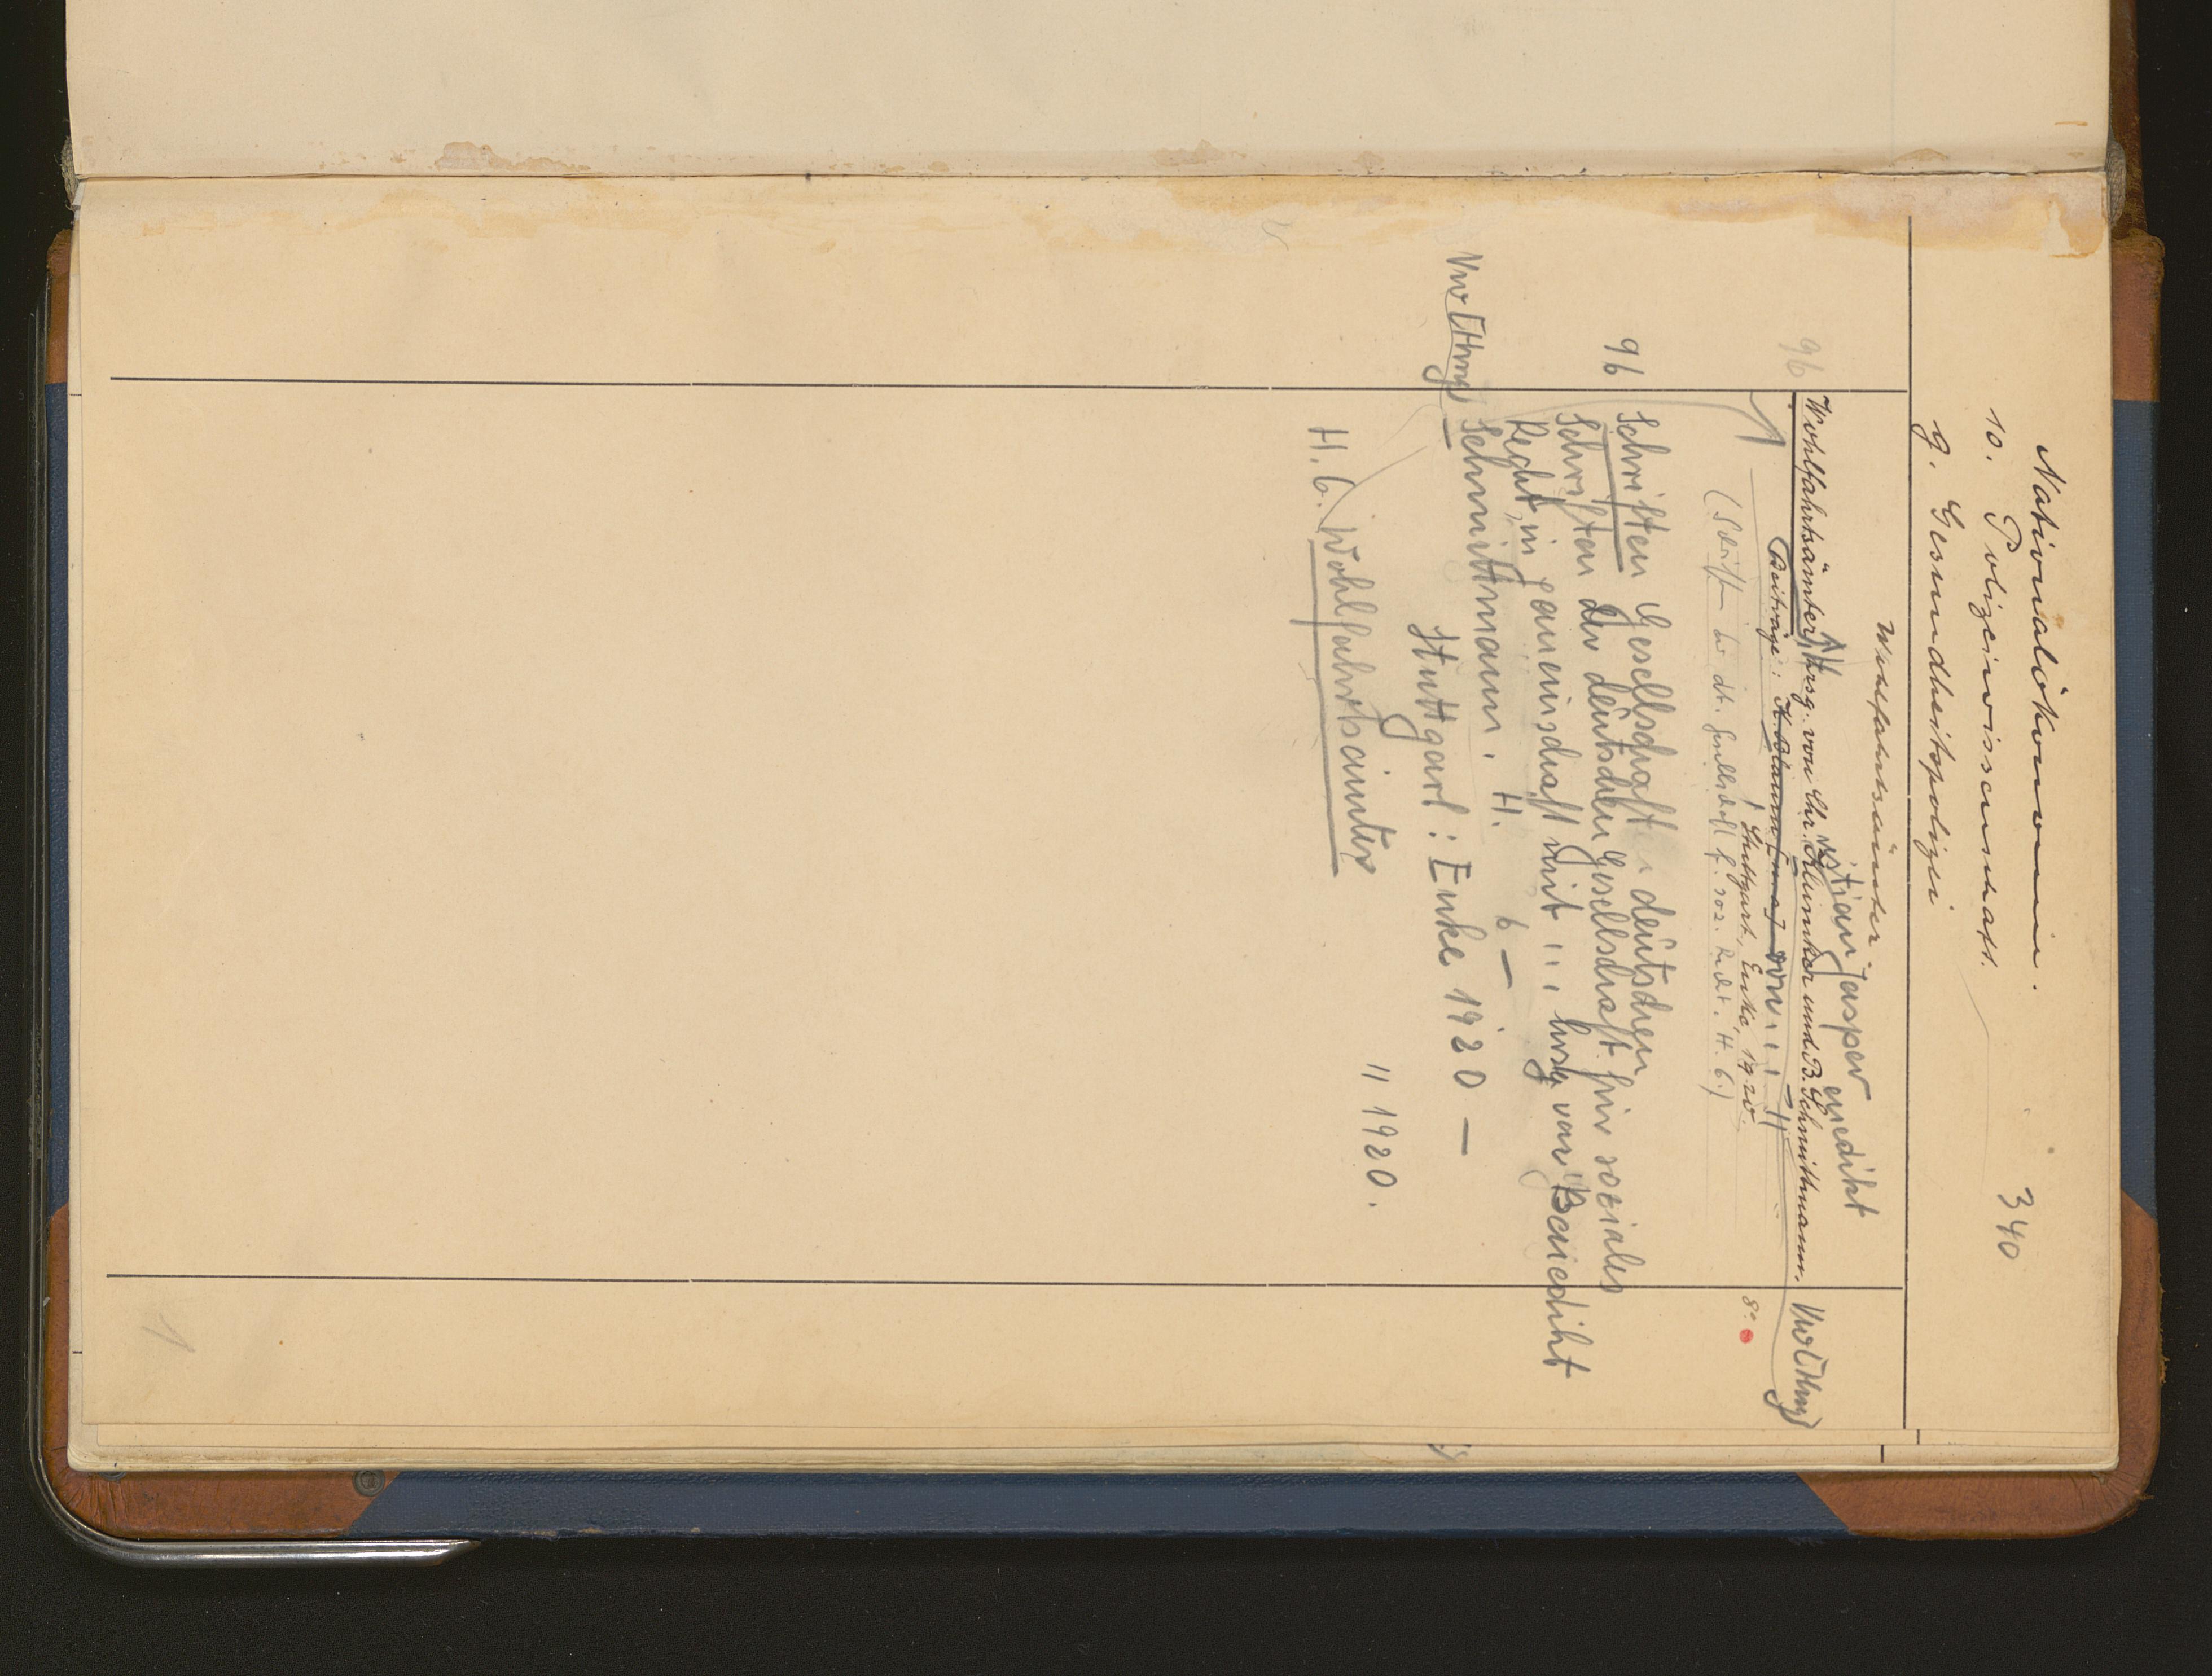 Nationalökonomie.
10. Polizeiwissenschaft.
g. Gesundheitspolizei
340
Wohlfahrtsämter
istian Jasper enedikt
96 Wohlfahrtsämter, Hrsg. von Chr. Klumker und B. Schmittmann.
Beiträge: von
Stuttgart, Enke, 1920. 8°.
(Schriften der dt. Gesellschaft f. soz. Recht. H. 6.)
96 Schriften Gesellschaft deutschen
Schriften der deutschen Gesellschaft für soziales
Recht, in gemeinschaft mit ... hrsg. von Benedikt
Schmittmann. H. 6 –
Stuttgart: Enke 1920 –
H. 6. Wohlfahrtsämter
11 1920.